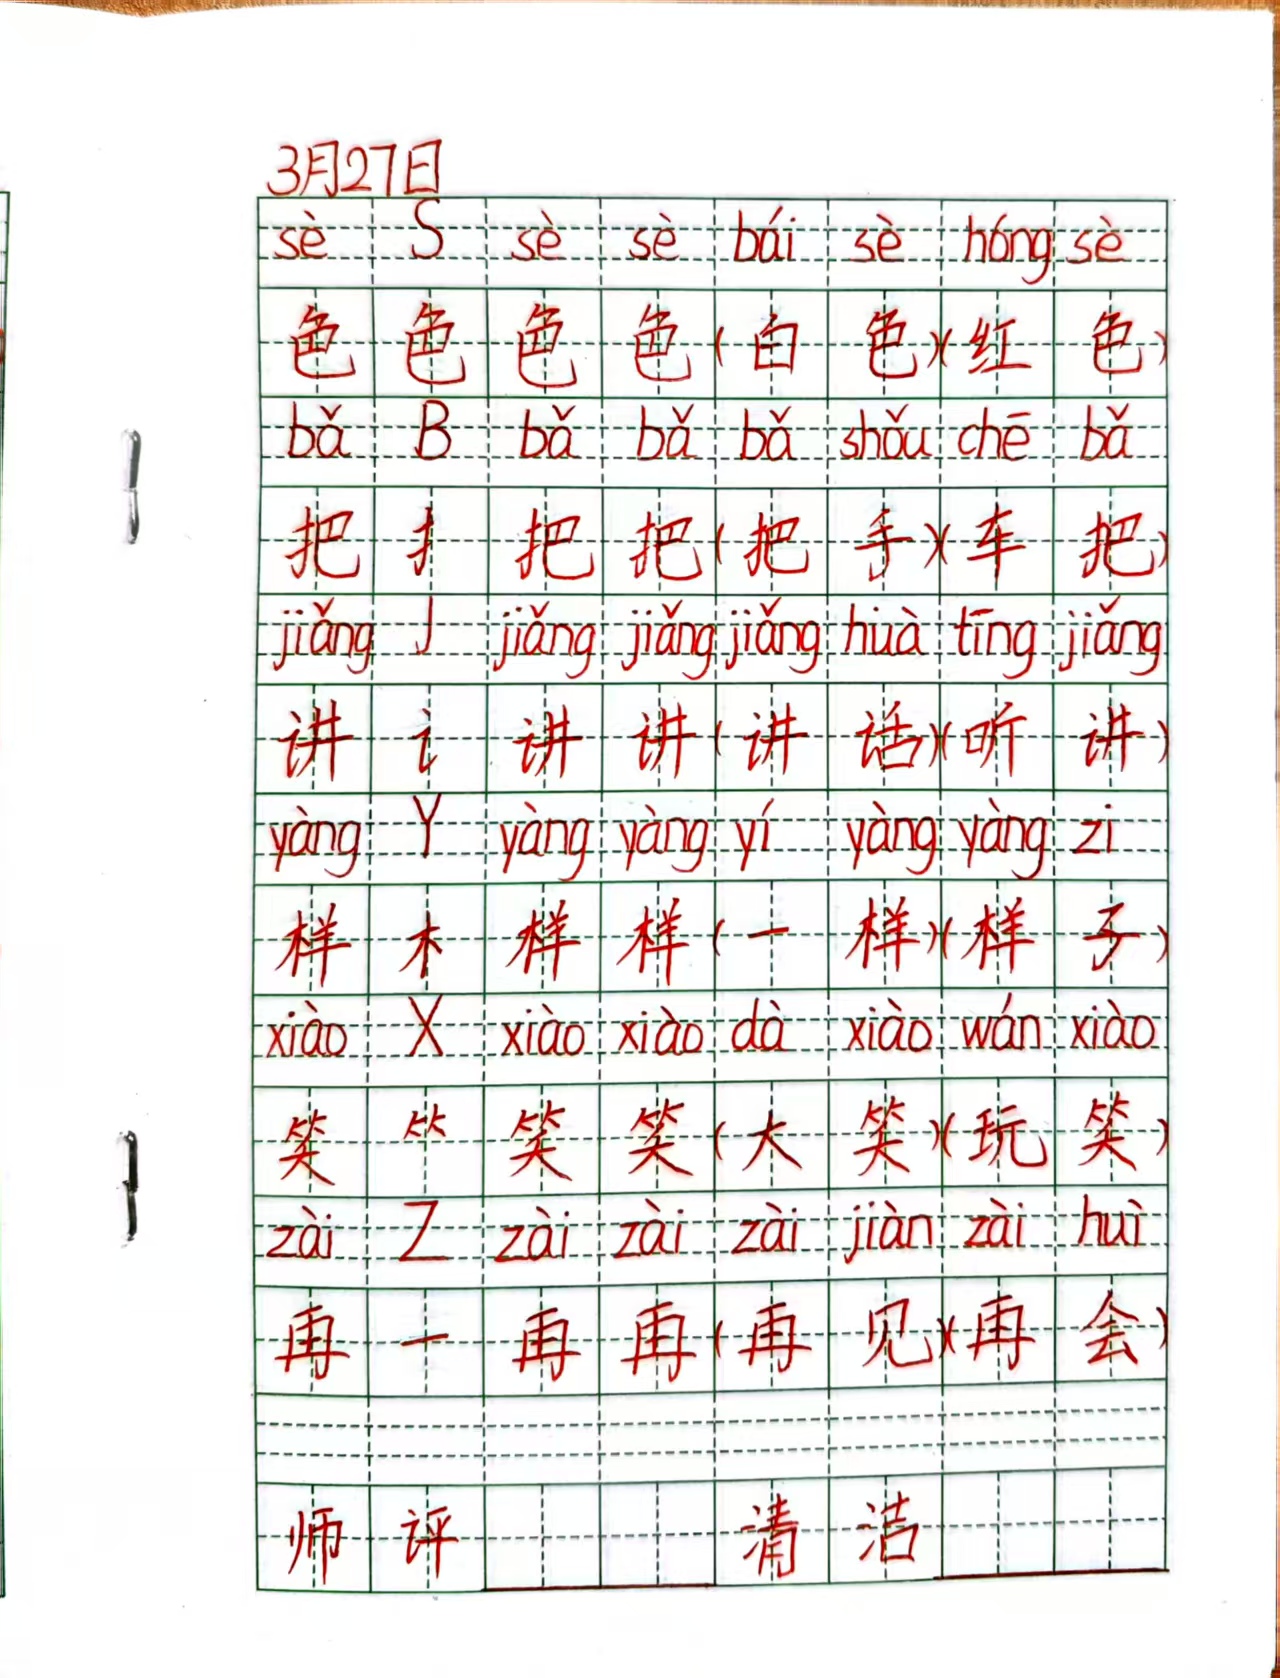 3月27日
sè S sè sè bái sè hóng sè
色 色 色 色 (白 色)(红 色)
bǎ B bǎ bǎ bǎ shǒu chē bǎ
把 扌 把 把 (把 手)(车 把)
jiǎng J jiǎng jiǎng jiǎng huà tīng jiǎng
讲 讠 讲 讲 (讲 话)(听 讲)
yàng Y yàng yàng yí yàng yàng zi
样 木 样 样 (一 样)(样 子)
xiào X xiào xiào dà xiào wán xiào
笑 ⺮ 笑 笑 (大 笑)(玩 笑)
zài Z zài zài zài jiàn zài huì
再 一 再 再 (再 见)(再 会)
师 评 清 洁